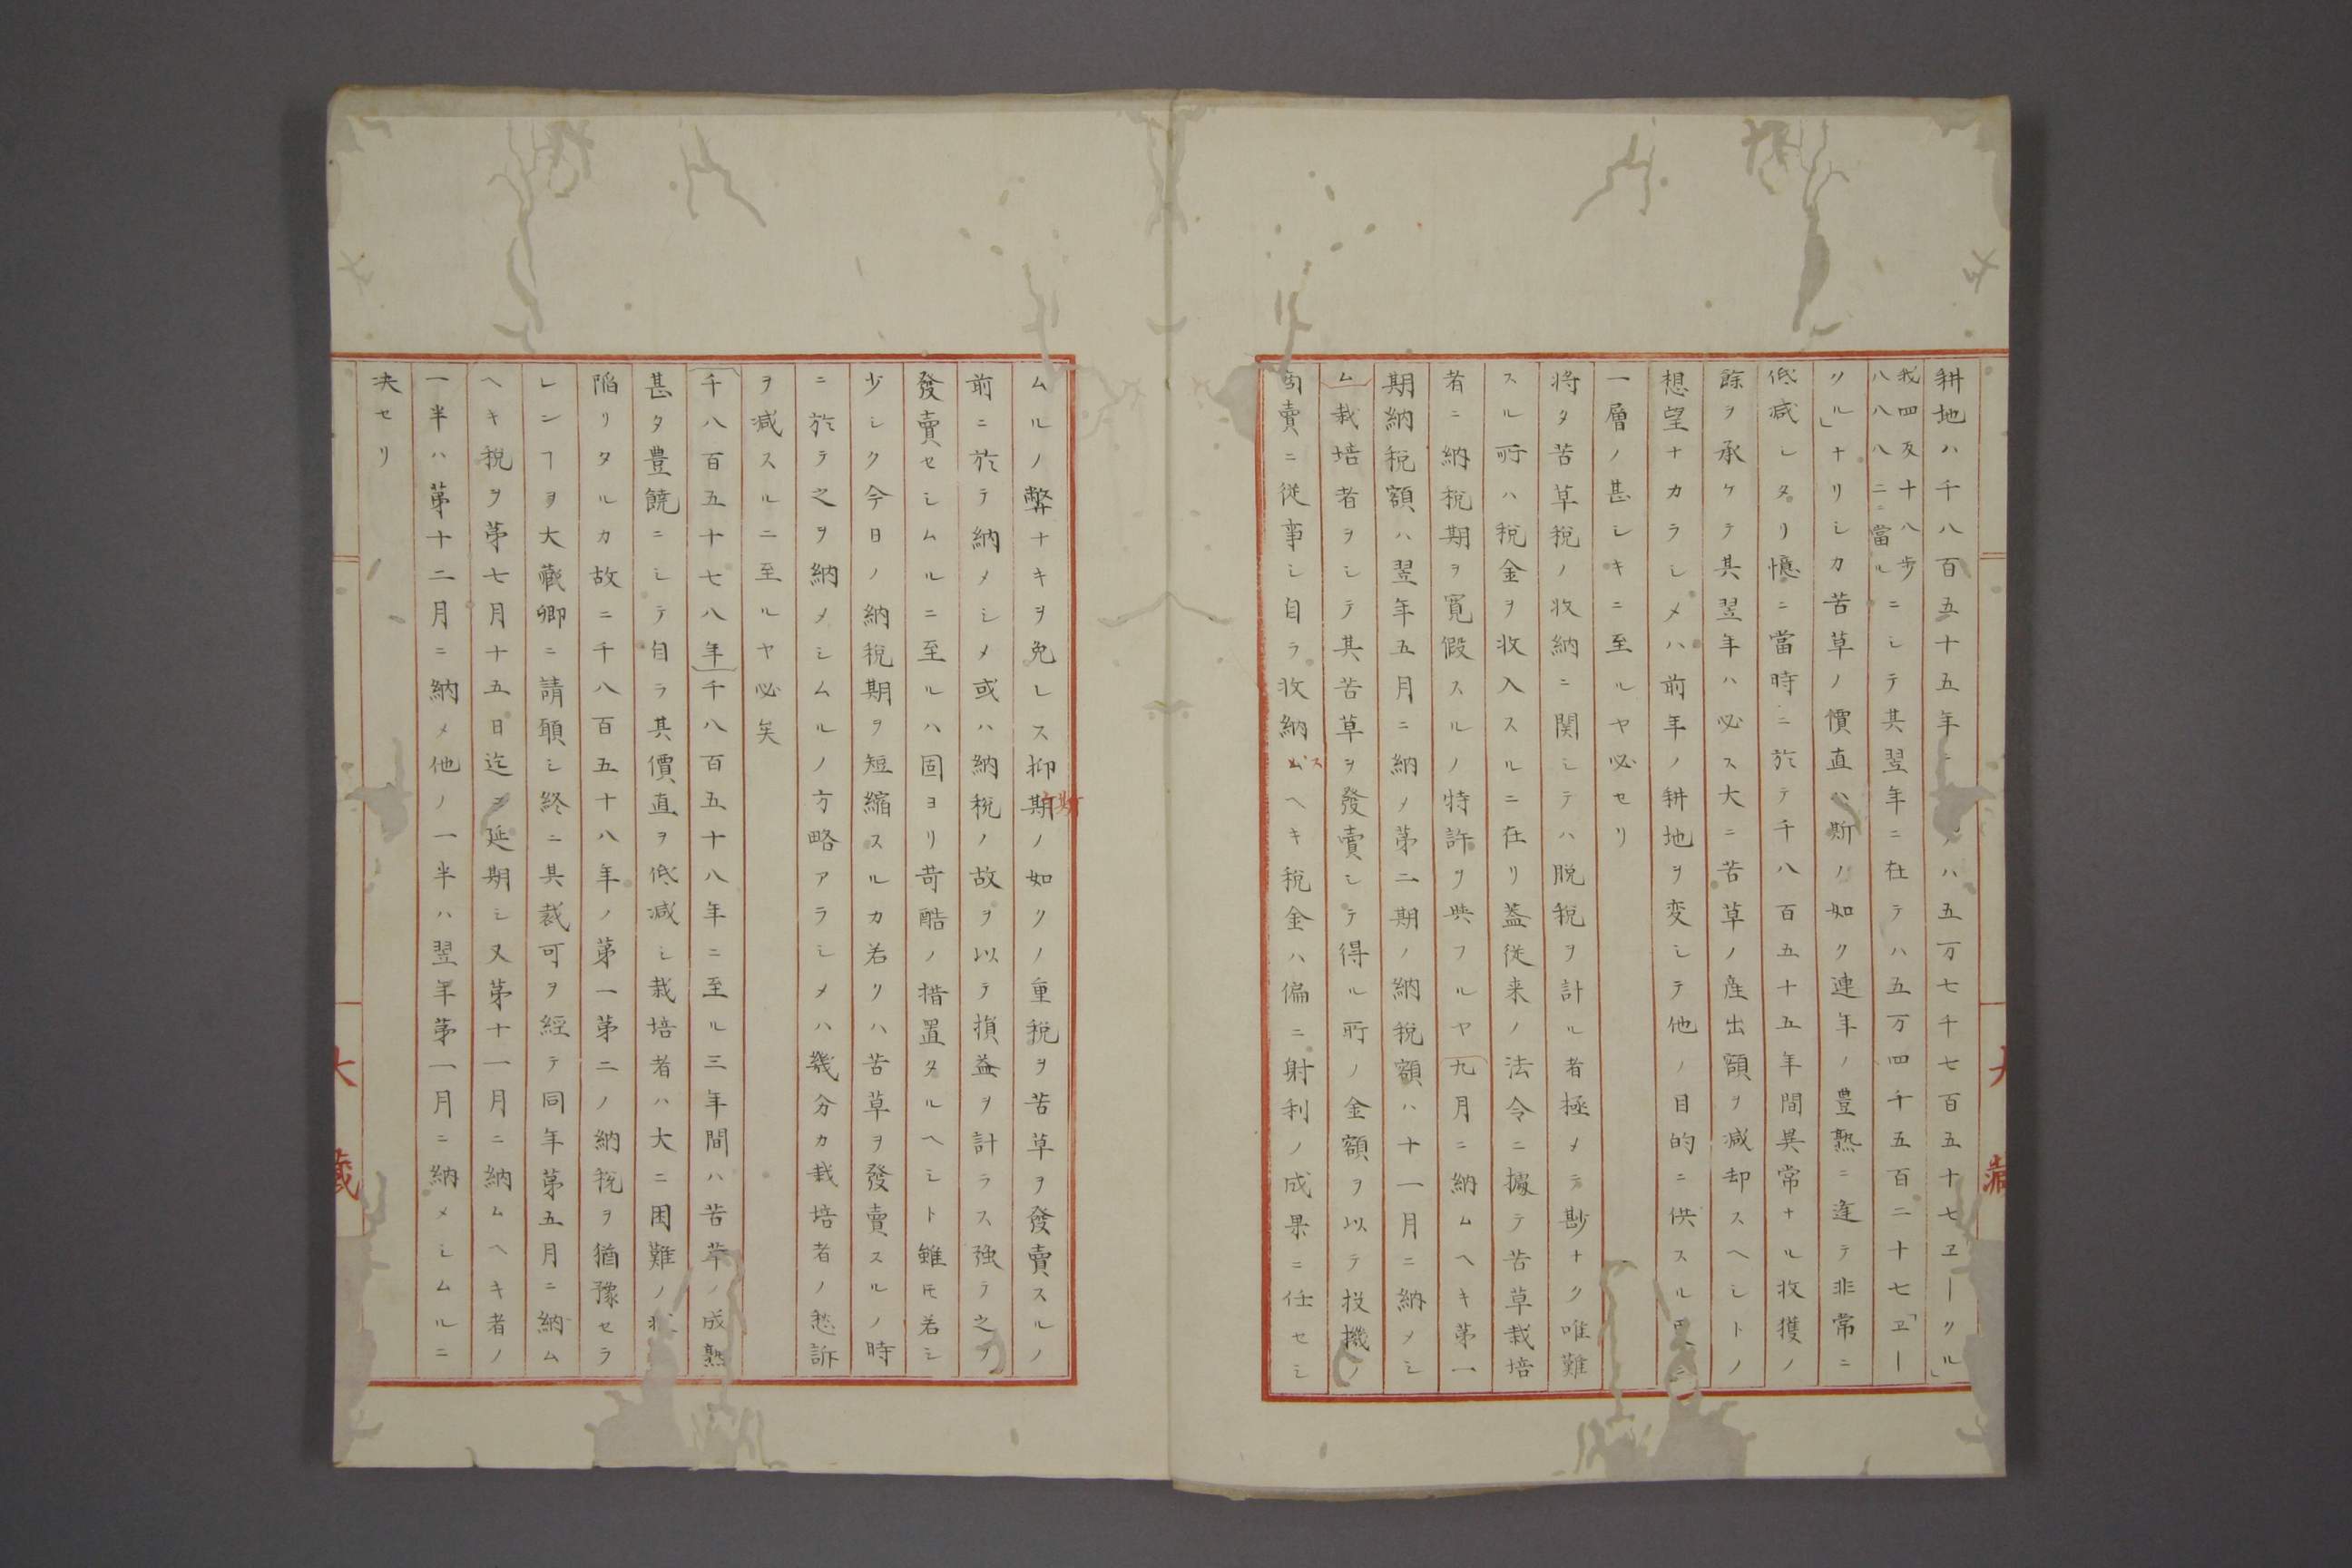 耕地ハ千八百五十五年ニノハ五万七千七百五十七ヱークル」
我四反十八歩
八八八ニ當ル
ニシテ其翌年ニ在テハ五万四千五百二十七「ヱー
クル」ナリシカ苦草ノ價直ハ斯ノ如ク連年ノ豊熟ニ逢テ非常ニ
低減シタリ憶ニ當時ニ於テ千八百五十五年間異常ナル收獲ノ
餘ヲ承ケテ其翌年ハ必ス大ニ苦草ノ産出額ヲ減却スヘシトノ
想望ナカラシメハ前年ノ耕地ヲ変シテ他ノ目的ニ供スル
一層ノ甚シキニ至ルヤ必セリ
将タ苦草税ノ收納ニ関シテハ脱税ヲ計ル者極メテ尠ナク唯難
スル所ハ税金ヲ收入スルニ在リ蓋従来ノ法令ニ據テ苦草栽培
者ニ納税期ヲ寛假スルノ特許ヲ與フルヤ九月ニ納ムヘキ第一
期納税額ハ翌年五月ニ納メ第二期ノ納税額ハ十一月ニ納メシ
ム栽培者ヲシテ其苦草ヲ發賣シテ得ル所ノ金額ヲ以テ投機ノ
賣ニ従事シ自ラ收納スヘキ税金ハ偏ニ射利ノ成果ニ任セシ
大藏
ムルノ弊ナキヲ免レス抑期ノ如クノ重税ヲ苦草ヲ發賣スルノ
斯
前ニ於テ納メシメ或ハ納税ノ故ヲ以テ損益ヲ計ラス強テ之ヲ
發賣セシムルニ至ルハ固ヨリ苛酷ノ措置タルヘシト雖𪜈若シ
少シク今日ノ納税期ヲ短縮スルカ若クハ苦草ヲ發賣スルノ時
ニ於テ之ヲ納メシムルノ方略アラシメハ幾分カ栽培者ノ愁訴
ヲ減スルニ至ルヤ必矣
千八百五十七八年千八百五十八年ニ至ル三年間ハ苦草ノ成熟
甚タ豊饒ニシテ自ラ其價直ヲ低減シ栽培者ハ大ニ困難ノ
陥リタルカ故ニ千八百五十八年ノ第一第二ノ納税ヲ猶豫セラ
レンヿヲ大藏卿ニ請願シ終ニ其裁可ヲ經テ同年第五月ニ納ム
ヘキ税ヲ第七月十五日迄ヲ延期シ又第十一月ニ納ムヘキ者ノ
一半ハ第十二月ニ納メ他ノ一半ハ翌年第一月ニ納メシムルニ
决セリ
大藏